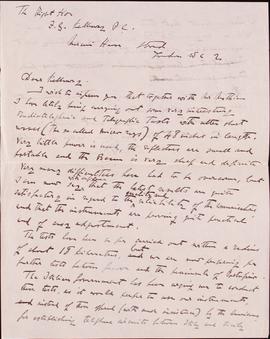 The Right Hon
F. G. Kellaway P.C.
Marconi House Strand
London W C 2.
Dear Kellaway,
I wish to inform you that together with Mr Mathieu
I have lately been carrying out some very interesting
Radiotelephonic and Telegraphic Tests with ultra short
waves (the so called micro rays) of 48 inches in length.
Very little power is used, the reflectors are small and
portable and the Beam is very sharp and definite
Very many difficulties have had to be overcome, but
I can now say that the latest results are quite
satisfactory in regard to the reliability of the communication
and that the instruments are proving quite practical
and of easy adjustment.
The tests have been so far carried out within a radius
of about 18 kilometres, and we are now preparing for
further tests between and the peninsula of
The Italian Government has been urging me to conduct
these tests, as it would prefer to use our instruments,
and instead of those offered (with more insistence) by the
for establishing telephone circuits between Italy and